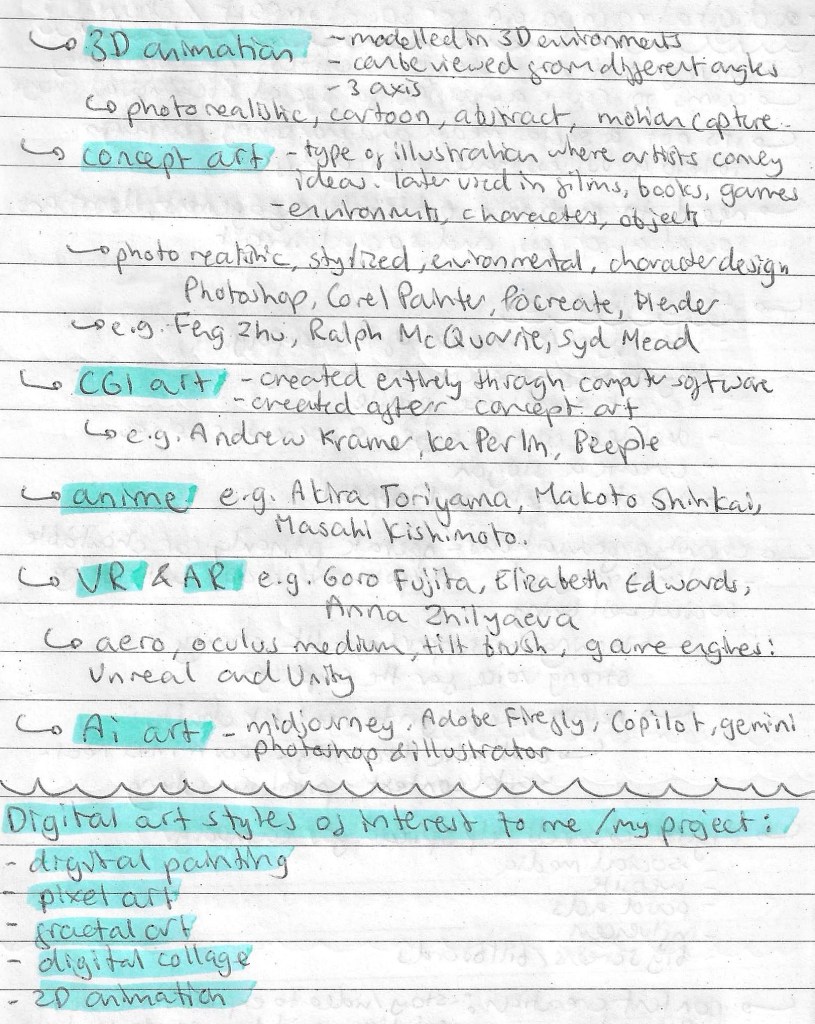 ↳ 3D animation - modelled in 3D environments
- can be viewed from different angles
- 3 axis
↳ photo realistic, cartoon, abstract, motion capture.
↳ concept art - type of illustration where artists convey
ideas. later used in films, books, games
environments, characters, objects
↳ photo realistic, stylized, environmental, character design
Photoshop, Corel Painter, Procreate, blender
↳ e.g. Feng Zhu, Ralph McQuarrie, Syd Mead
↳ CGI art - created entirely through computer software
- created after concept art
↳ e.g. Andrew Kramer, Ken Perlin, Beeple
↳ anime e.g. Akira Toriyama, Makoto Shinkai,
Masahi Kishimoto.
↳ VR & AR e.g. Goro Fujita, Elizabeth Edwards,
Anna Zhilyaeva
↳ aero, oculus medium, tilt brush, game engines:
Unreal and Unity
↳ Ai art - midjourney, Adobe Firefly, Copilot, gemini
photoshop & illustrator
Digital art styles of interest to me / my project:
- digital painting
- pixel art
- fractal art
- digital collage
- 2D animation